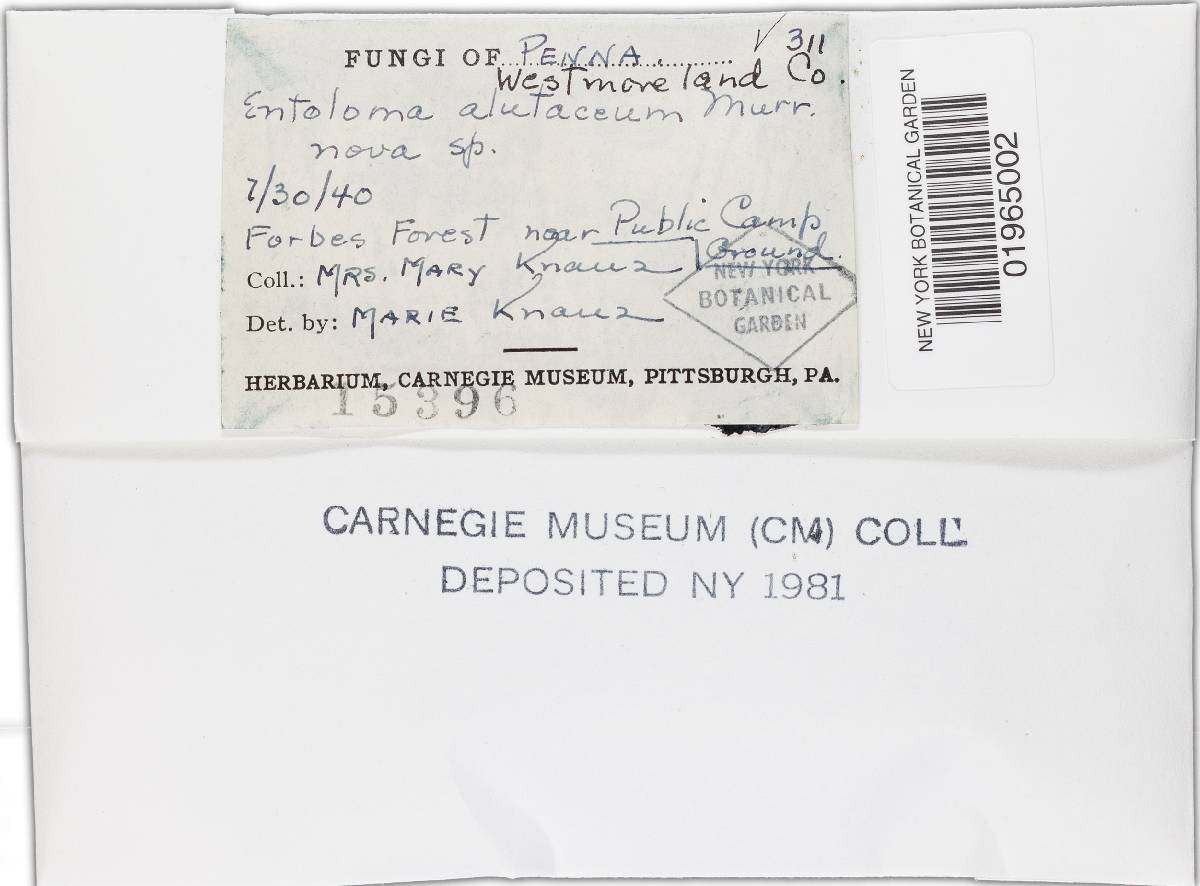 FUNGI OF PENNA. ✓ 311
Westmoreland Co.
Entoloma alutaceum Murr.
nova sp.
7/30/40
Forbes Forest near Public Camp
Ground.
Coll.: MRS. MARY Knauz
Det. by: MARIE Knauz
NEW YORK
BOTANICAL
GARDEN
HERBARIUM, CARNEGIE MUSEUM, PITTSBURGH, PA.
15396
NEW YORK BOTANICAL GARDEN
01965002
CARNEGIE MUSEUM (CM) COLL.
DEPOSITED NY 1981